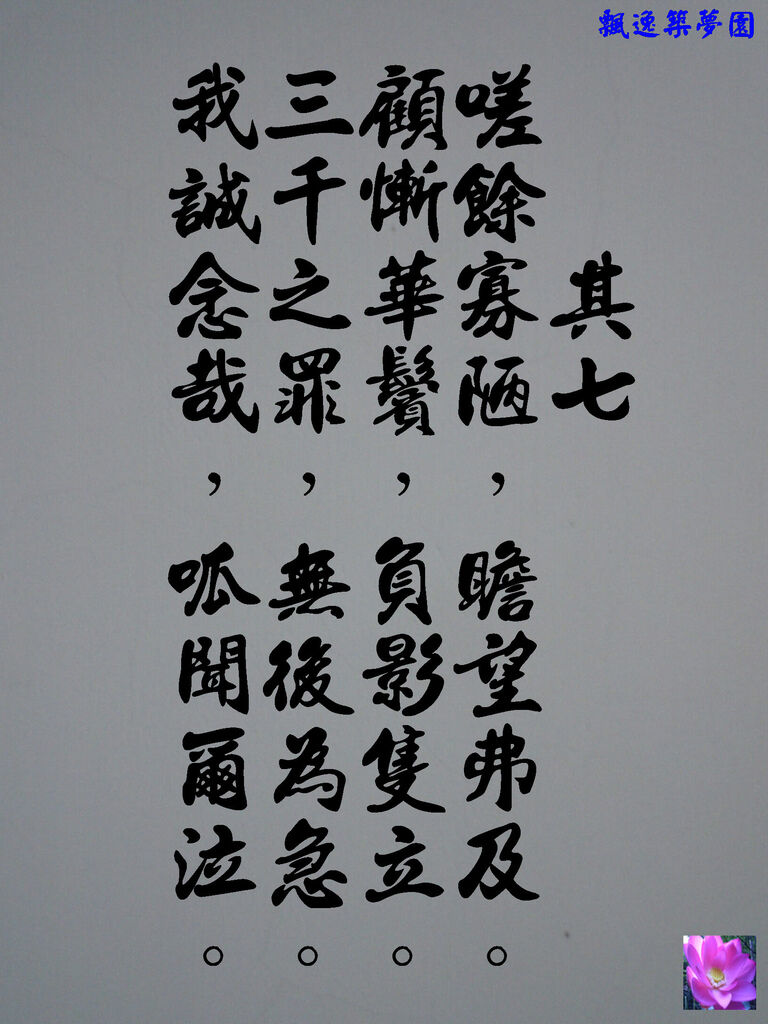 飄逸築夢園
其七
嗟餘寡陋，瞻望弗及。
顧慚華鬢，負影隻立。
三千之罪，無後為急。
我誠念哉，呱聞爾泣。